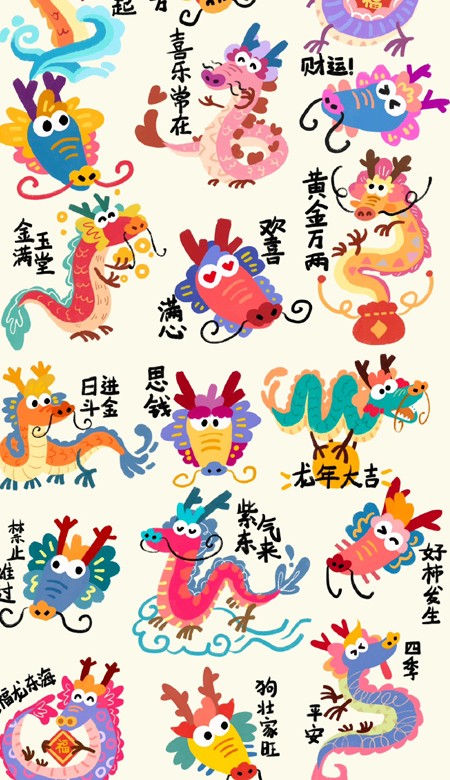 起
福
喜乐常在
财运!
黄金万两
金玉
满堂
满心
欢喜
日进
斗金
思钱
龙年大吉
禁止
过
紫气
东来
好柿发生
福龙东海
福
狗壮家旺
四季
平安